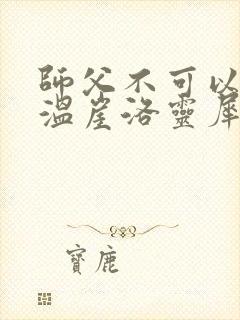 師父不可以
溫崖洛靈犀
寶鹿